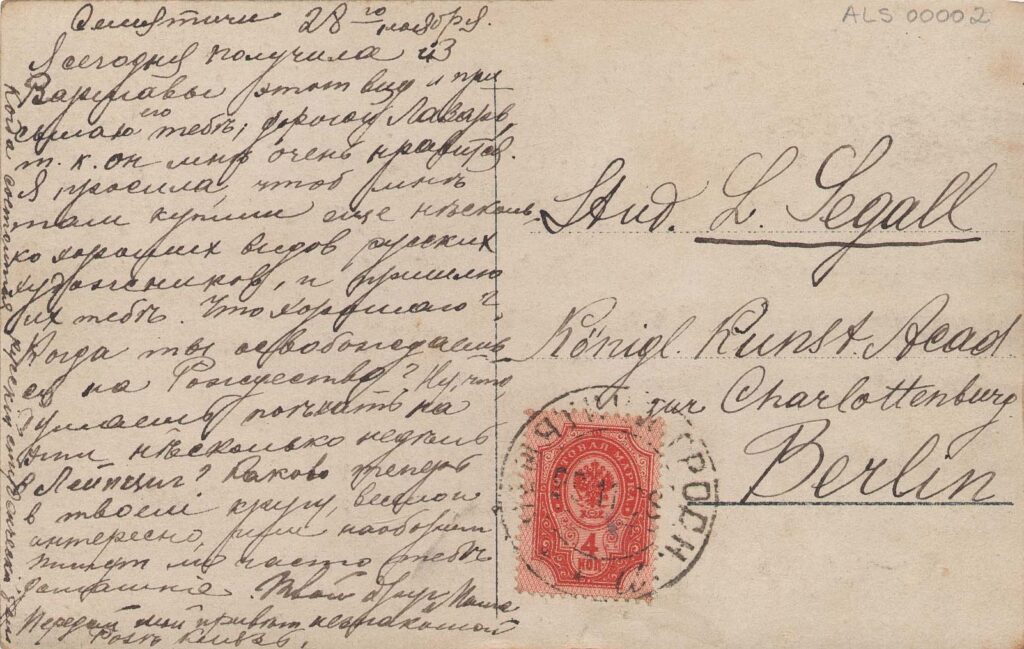 ALS 00002
Семятичи 28го ноября.
Я сегодня получила из
Варшавы этот вид и при
сылаю его тебѣ, дорогой Лазарь,
т. к. он мнѣ очень нравится.
Я просила, чтоб мнѣ
там купили еще нѣсколь
ко хороших видов русских
художников, и пришлю
их тебѣ. Что хорошаго?
Когда ты освобождаешь
ся на Рождество?
думаешь поѣхать на
эти нѣсколько недѣль
в Лейпциг? Каково теперь
в твоем кругу
интересно, или наоборот
пишут ли часто тебѣ
домашние. Твой друг Маша
Передай мой привет незнакомой
Когда состоится
Stud. L. Segall
Königl. Kunst. Acad
zur Charlottenburg
Berlin
ПОЧТОВАЯ МАРКА
4
КОП
ГРОДН.